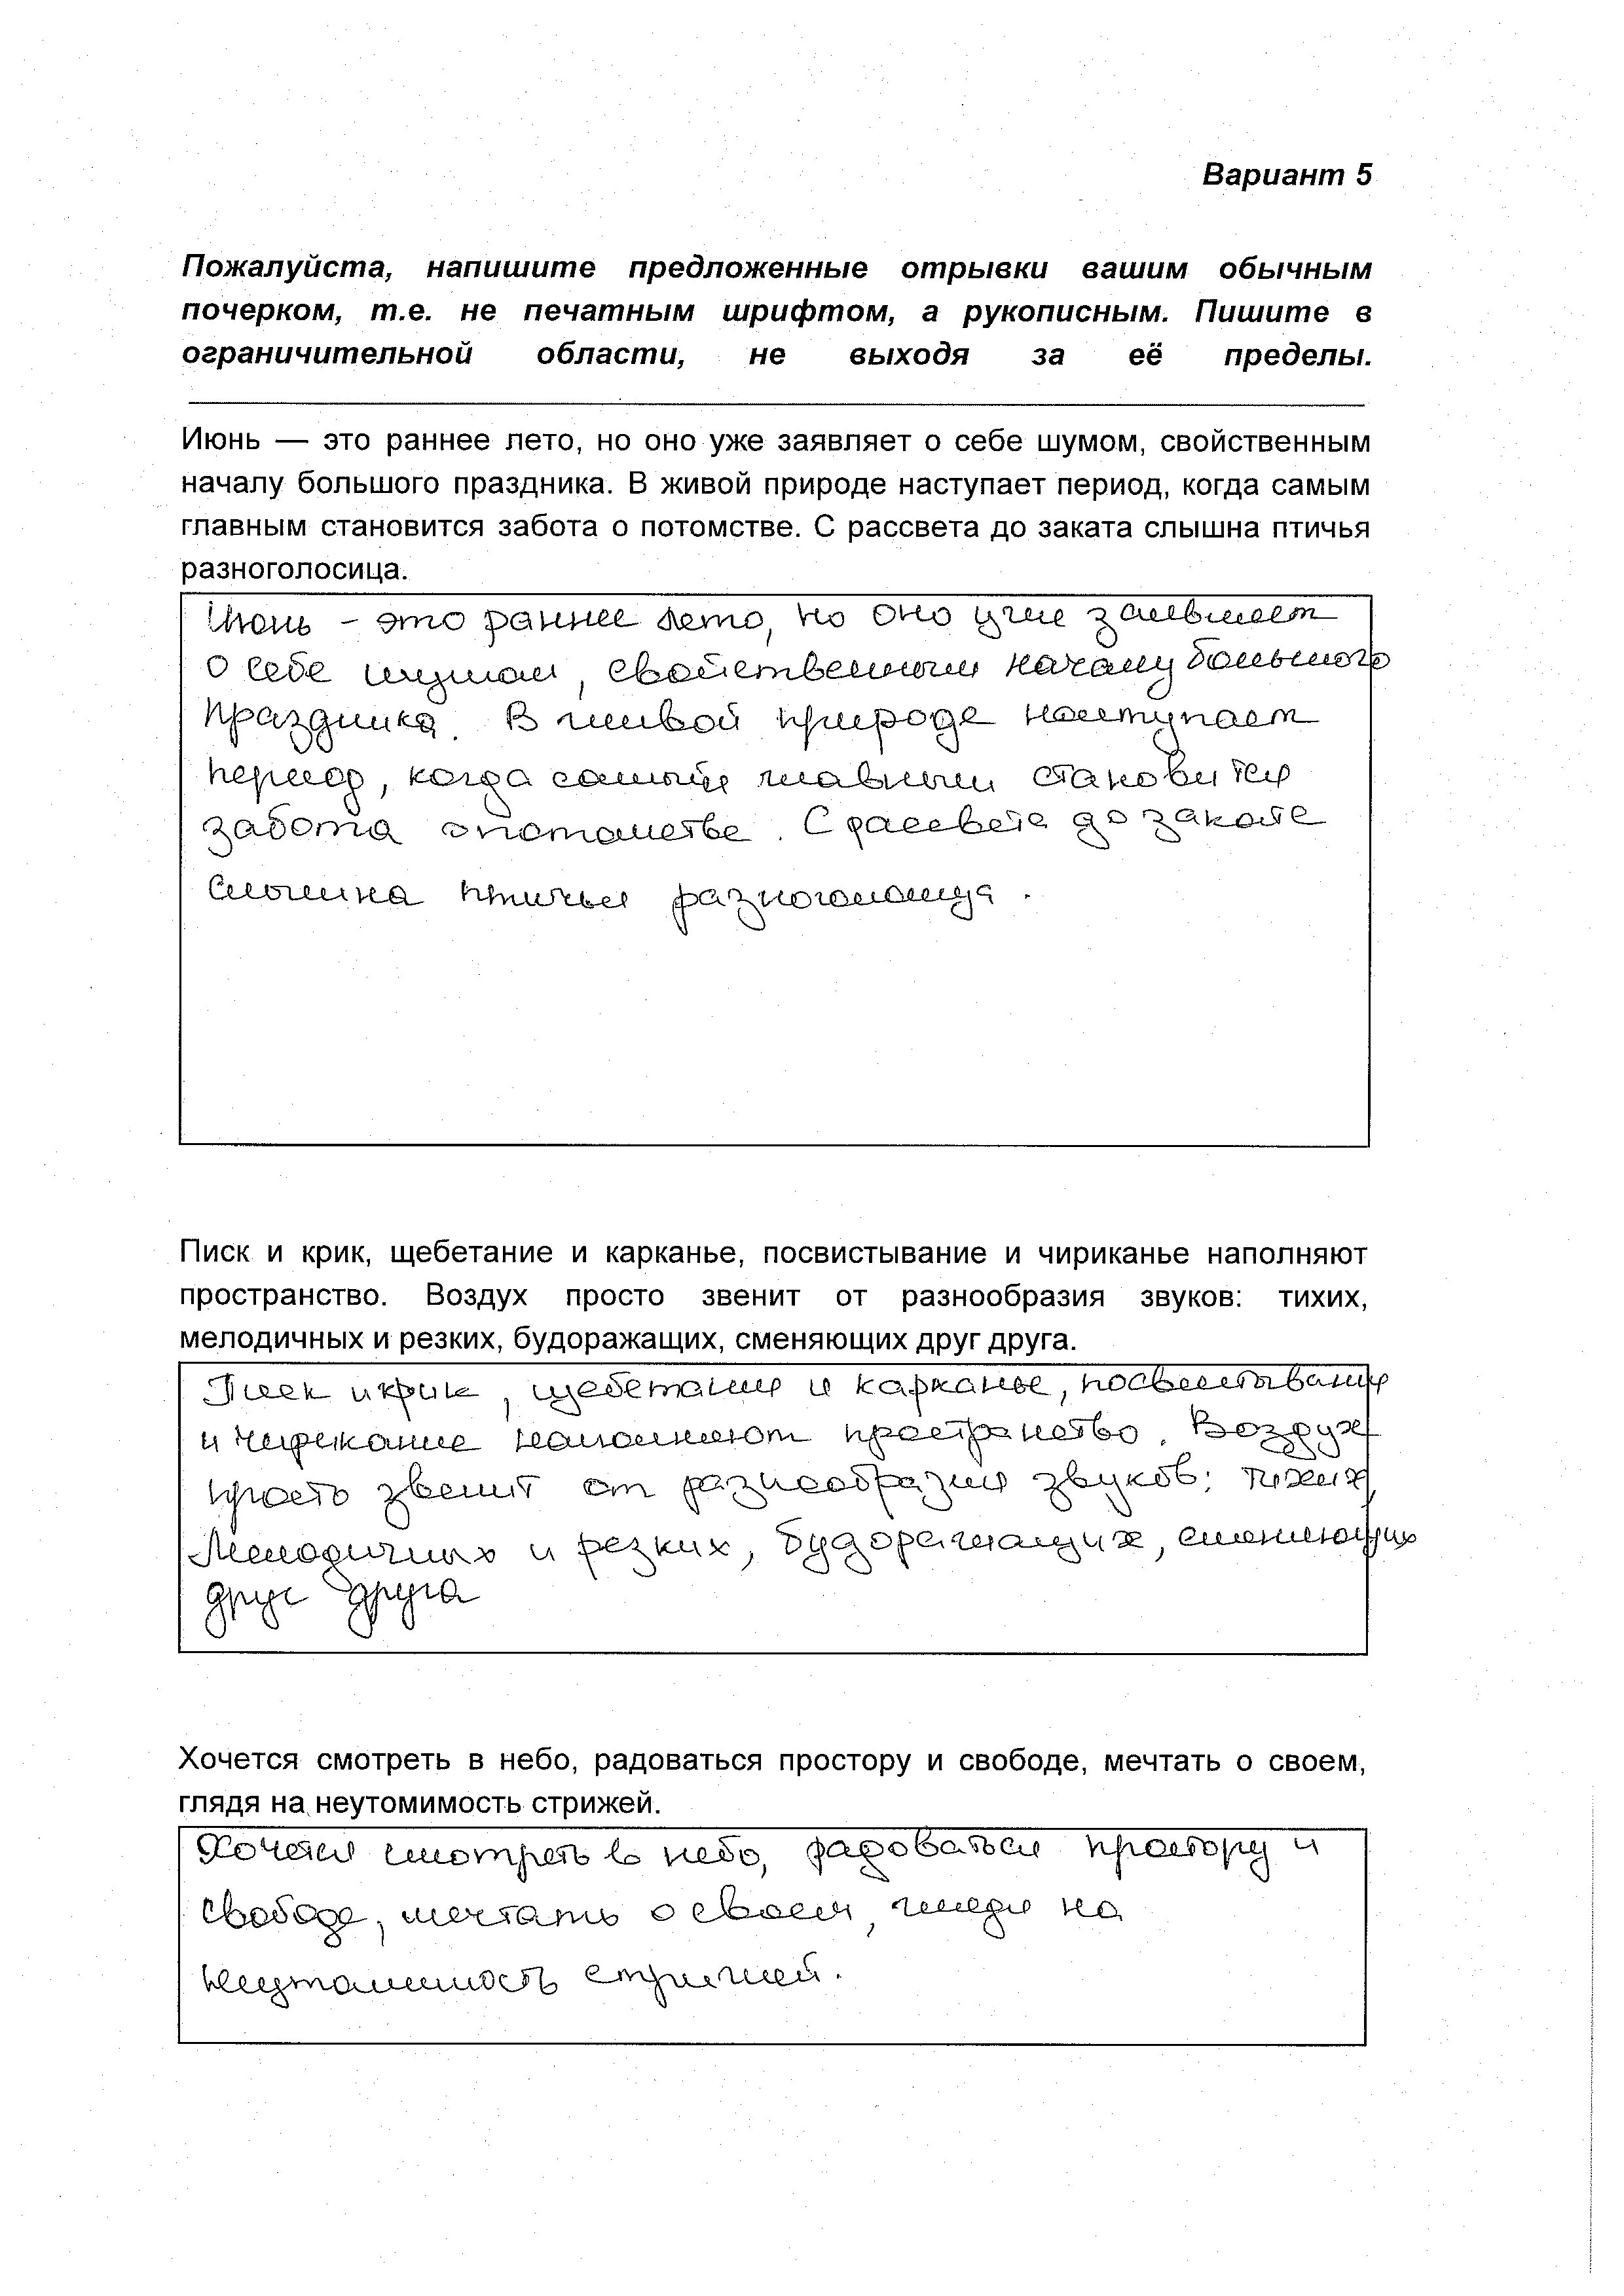 Вариант 5
Пожалуйста, напишите предложенные отрывки вашим обычным
почерком, т.е. не печатным шрифтом, а рукописным. Пишите в
ограничительной области, не выходя за её пределы.
Июнь — это раннее лето, но оно уже заявляет о себе шумом, свойственным
началу большого праздника. В живой природе наступает период, когда самым
главным становится забота о потомстве. С рассвета до заката слышна птичья
разноголосица.
Июнь - это раннее лето, но оно уже заявляет
о себе шумом, свойственным началу большого
праздника. В живой природе наступает
период, когда самым главным становится
забота о потомстве. С рассвета до заката
слышна птичья разноголосица.
Писк и крик, щебетание и карканье, посвистывание и чириканье наполняют
пространство. Воздух просто звенит от разнообразия звуков: тихих,
мелодичных и резких, будоражащих, сменяющих друг друга.
Писк и крик, щебетание и карканье, посвистывание
и чирикание наполняют пространство. Воздух
просто звенит от разнообразия звуков: тихих
Мелодичных и резких, будоражащих, сменяющих
друг друга
Хочется смотреть в небо, радоваться простору и свободе, мечтать о своем,
глядя на неутомимость стрижей.
Хочется смотреть в небо, радоваться простору и
свободе, мечтать о своем, глядя на
неутомимость стрижей.